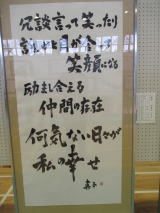 冗談言って笑ったり
言しやと目が合って
笑顔になる
励まし合える
仲間の存在
何気ない日々が
私の幸せ